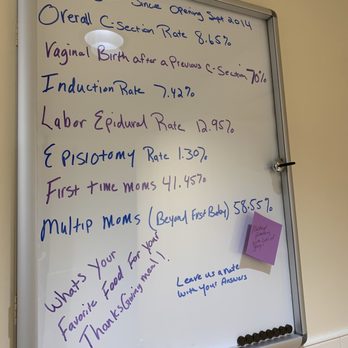 Since Opening Sept 2014
Overall C-Section Rate 8.65%
Vaginal Birth after a Previous C-Section 70%
Induction Rate 7.42%
Labor Epidural Rate 12.95%
Episiotomy Rate 1.30%
First time moms 41.45%
Multip Moms (Beyond First Baby) 58.55%
What's Your
Favorite Food For Your
Thanksgiving meal!!
Leave us a note
with your Answers